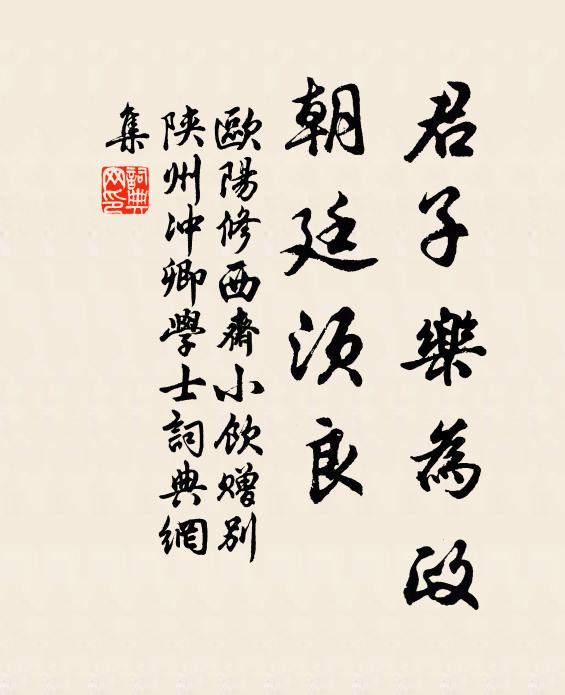 君子樂為政
朝廷須良
歐陽修西齋小飲贈別
陝州沖卿學士詞典網
集
詞典網印